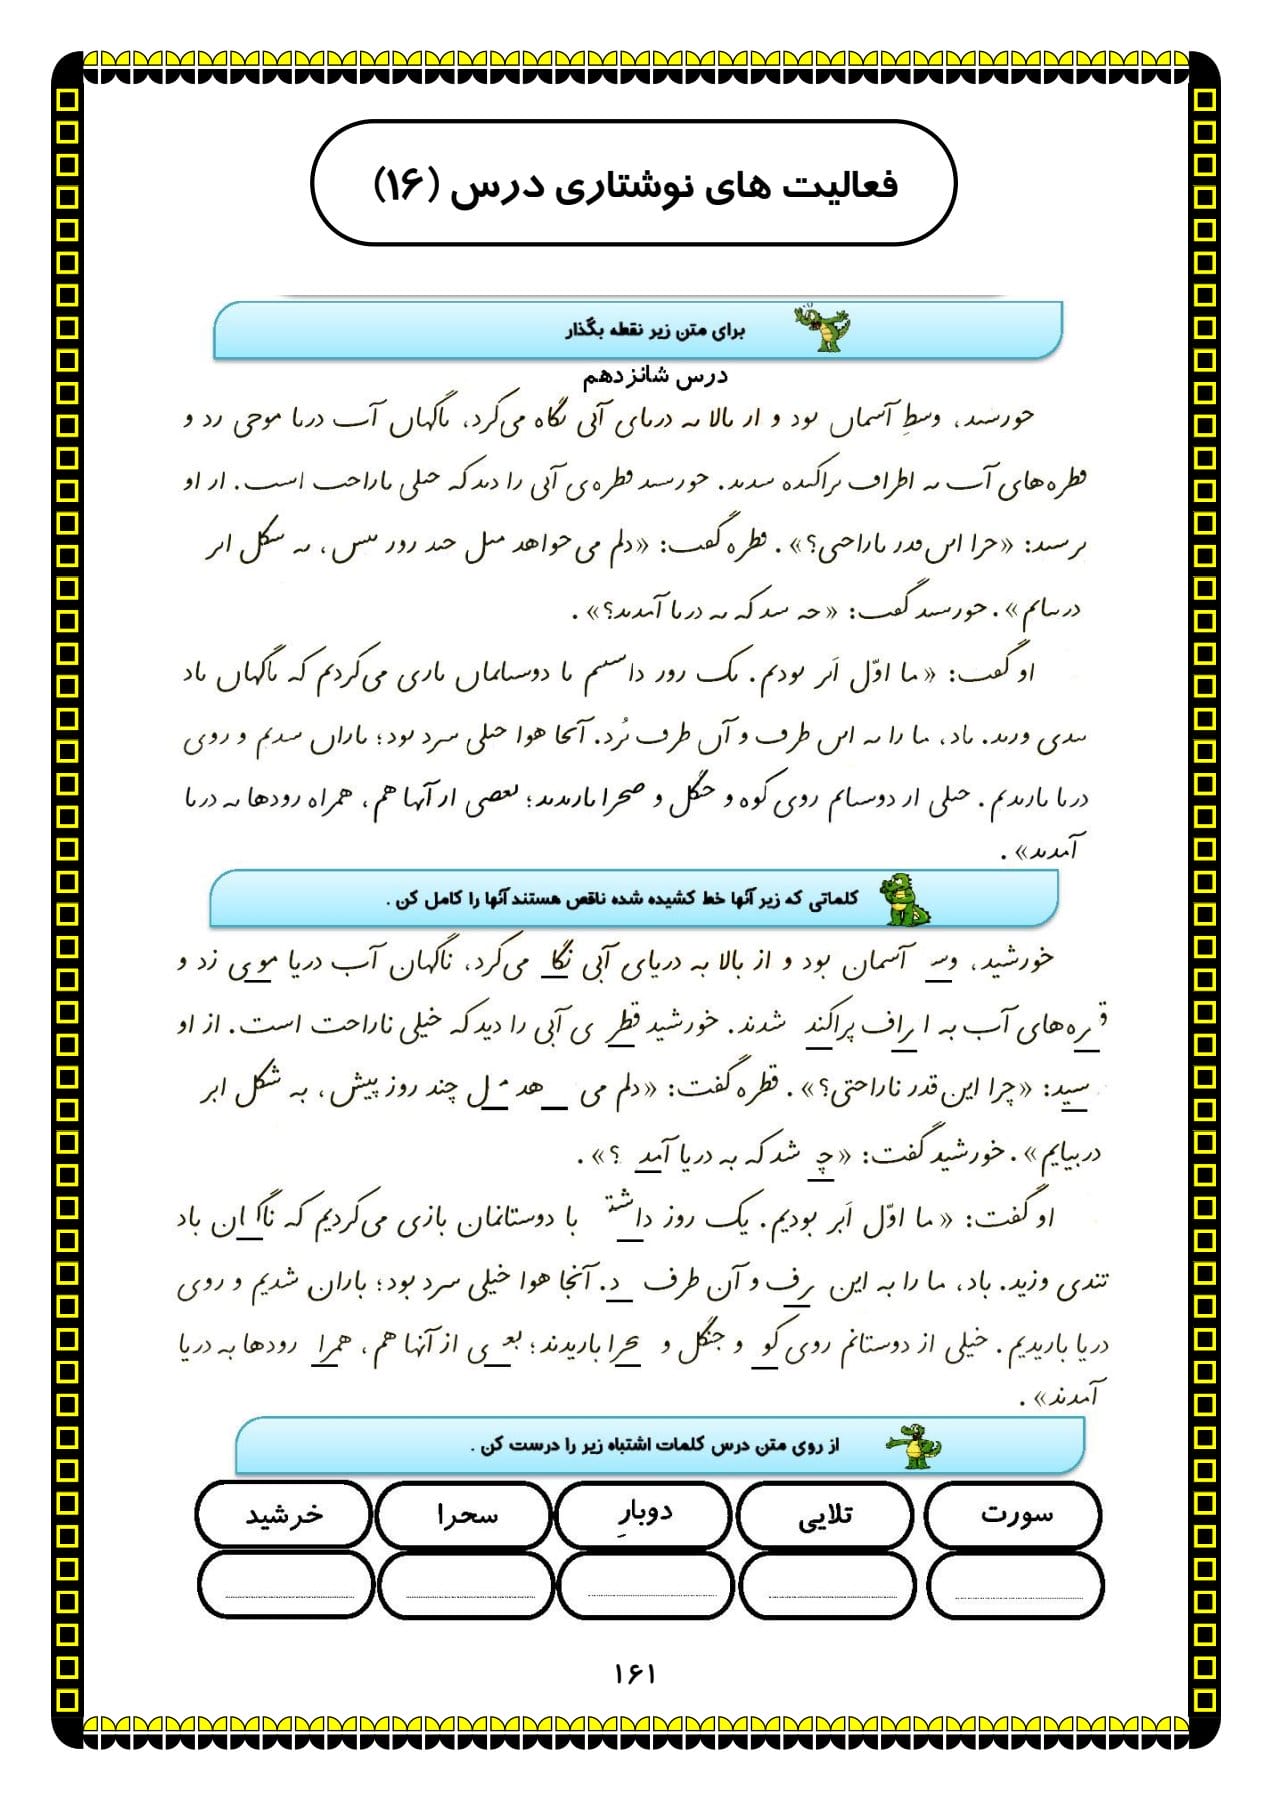 فعالیت های نوشتاری درس (۱۶)
برای متن زیر نقطه بگذار
درس شانزدهم
حورسٮد، وسطِ آسماں ٮود و ار ٮالا ٮه درٮای آٮی ٮگاه می‌کرد، ٮاگهاں آٮ درٮا موحی رد و
ٯطره‌های آٮ ٮه اطراڡ ٮراکٮده سدٮد. حورسٮد ٯطره‌ی آٮی را دٮد که حٮلی ٮاراحٮ اسٮ. ار او
ٮرسٮد: «حرا اٮں ٯدر ٮاراحٮی؟». ٯطره گڡٮ: «دلم می حواهد مٮل حٮد رور ٮٮس، ٮه سکل اٮر
درٮٮاٮم». حورسٮد گڡٮ: «حه سد که ٮه درٮا آمدٮد؟».
او گڡٮ: «ما اوّل اَٮر ٮودٮم. ٮک رور داسٮٮم ٮا دوسٮاٮماں ٮاری می‌کردٮم که ٮاگهاں ٮاد
ٮٮدی ورٮد. ٮاد، ما را ٮه اٮں طرڡ و آں طرڡ ٮُرد. آٮحا هوا حٮلی سرد ٮود؛ ٮاراں سدٮم و روی
درٮا ٮارٮدٮم. حٮلی ار دوسٮاٮم روی کوه و حٮگل و صحرا ٮارٮدٮد؛ ٮعصی ار آٮها هم، همراه رودها ٮه درٮا
آمدٮد».
کلماتی که زیر آنها خط کشیده شده ناقص هستند آنها را کامل کن .
خورشید، وسـ آسمان بود و از بالا به دریای آبی نگا می‌کرد، ناگهان آب دریا مو_ی زد و
قـ_ره‌های آب به ا_راف پراکند شدند. خورشید قطر ی آبی را دید که خیلی ناراحت است. از او
_سید: «چرا این قدر ناراحتی؟». قطره گفت: «دلم می _هد مـ_ل چند روز پیش، به شکل ابر
دربیایم». خورشید گفت: «چـ شد که به دریا آمد ؟».
او گفت: «ما اوّل اَبر بودیم. یک روز داشتـ با دوستانمان بازی می‌کردیم که ناگـ_ان باد
تندی وزید. باد، ما را به این _رف و آن طرف _د. آنجا هوا خیلی سرد بود؛ باران شدیم و روی
دریا باریدیم. خیلی از دوستانم روی کو و جنگل و _حرا باریدند؛ بعـ_ی از آنها هم، همرا رودها به دریا
آمدند».
از روی متن درس کلمات اشتباه زیر را درست کن .
سورت تلایی دوبارِ سحرا خرشید
۱۶۱